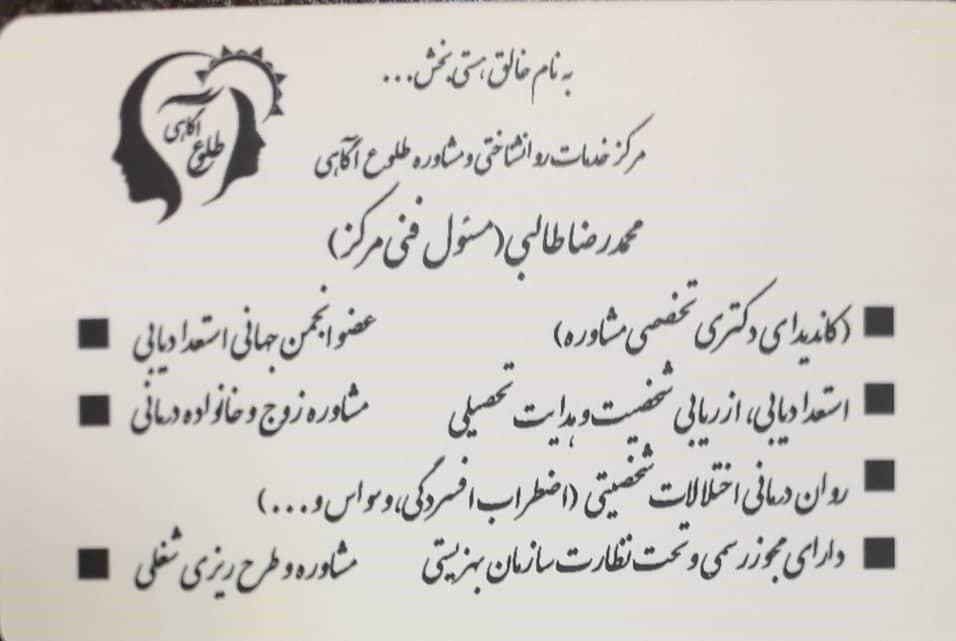 به نام خالق هستی بخش...
آگاهی
طلوع
مرکز خدمات روانشناختی و مشاوره طلوع آگاهی
محمدرضا طالبی (مسئول فنی مرکز)
(کاندیدای دکتری تخصصی مشاوره) عضو انجمن جهانی استعدادیابی
استعدادیابی، ارزیابی شخصیت و هدایت تحصیلی مشاوره زوج و خانواده درمانی
روان درمانی اختلالات شخصیتی (اضطراب افسردگی، وسواس و...)
دارای مجوز رسمی و تحت نظارت سازمان بهزیستی مشاوره و طرح ریزی شغلی